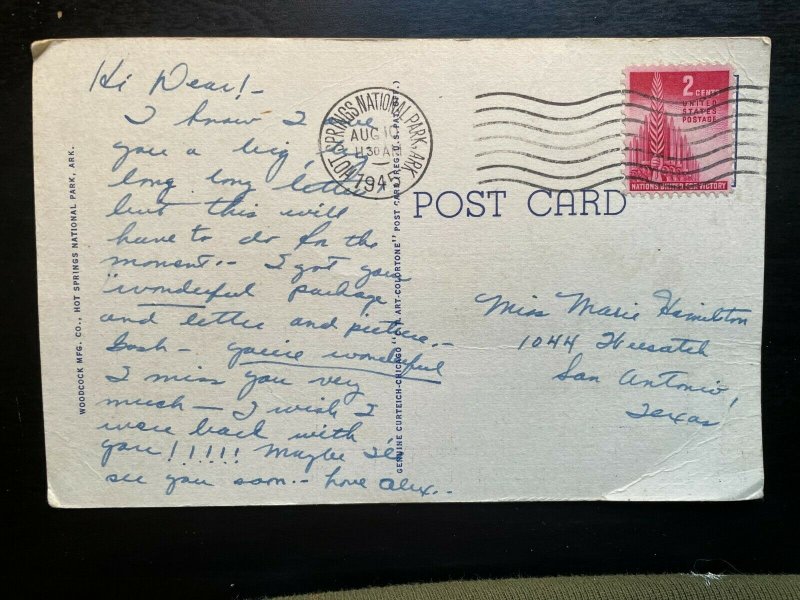 Hi Dear! -
I know I owe
you a big
long long letter
but this will
have to do for the
moment -- I got your
"wonderful package
and letter and picture. -
Gosh - you're wonderful
I miss you very
much - I wish I
were back with
you!!!!!! Maybe I'll
see you soon -- love Alex. -
WOODCOCK MFG. CO., HOT SPRINGS NATIONAL PARK, ARK.
GENUINE CURTEICH-CHICAGO "C.T. ART-COLORTONE" POST CARD (REG. U.S. PAT. OFF.)
HOT SPRINGS NATIONAL PARK, ARK.
AUG 10
11 30 A
1945
2 CENTS
UNITED
STATES
POSTAGE
NATIONS UNITED FOR VICTORY
POST CARD
Miss Marie Hamilton
1044
San Antonio
Texas